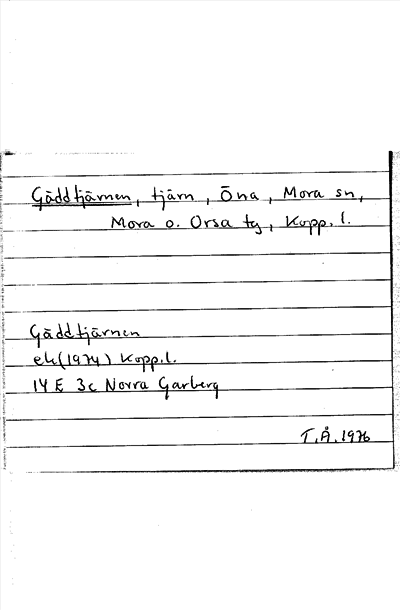 Gäddtjärnen, tjärn, Öna, Mora sn,
Mora o. Orsa tg, Kopp. l.
Gäddtjärnen
ek (1974) Kopp. l.
14 E 3c Norra Garberg
T.Å. 1976